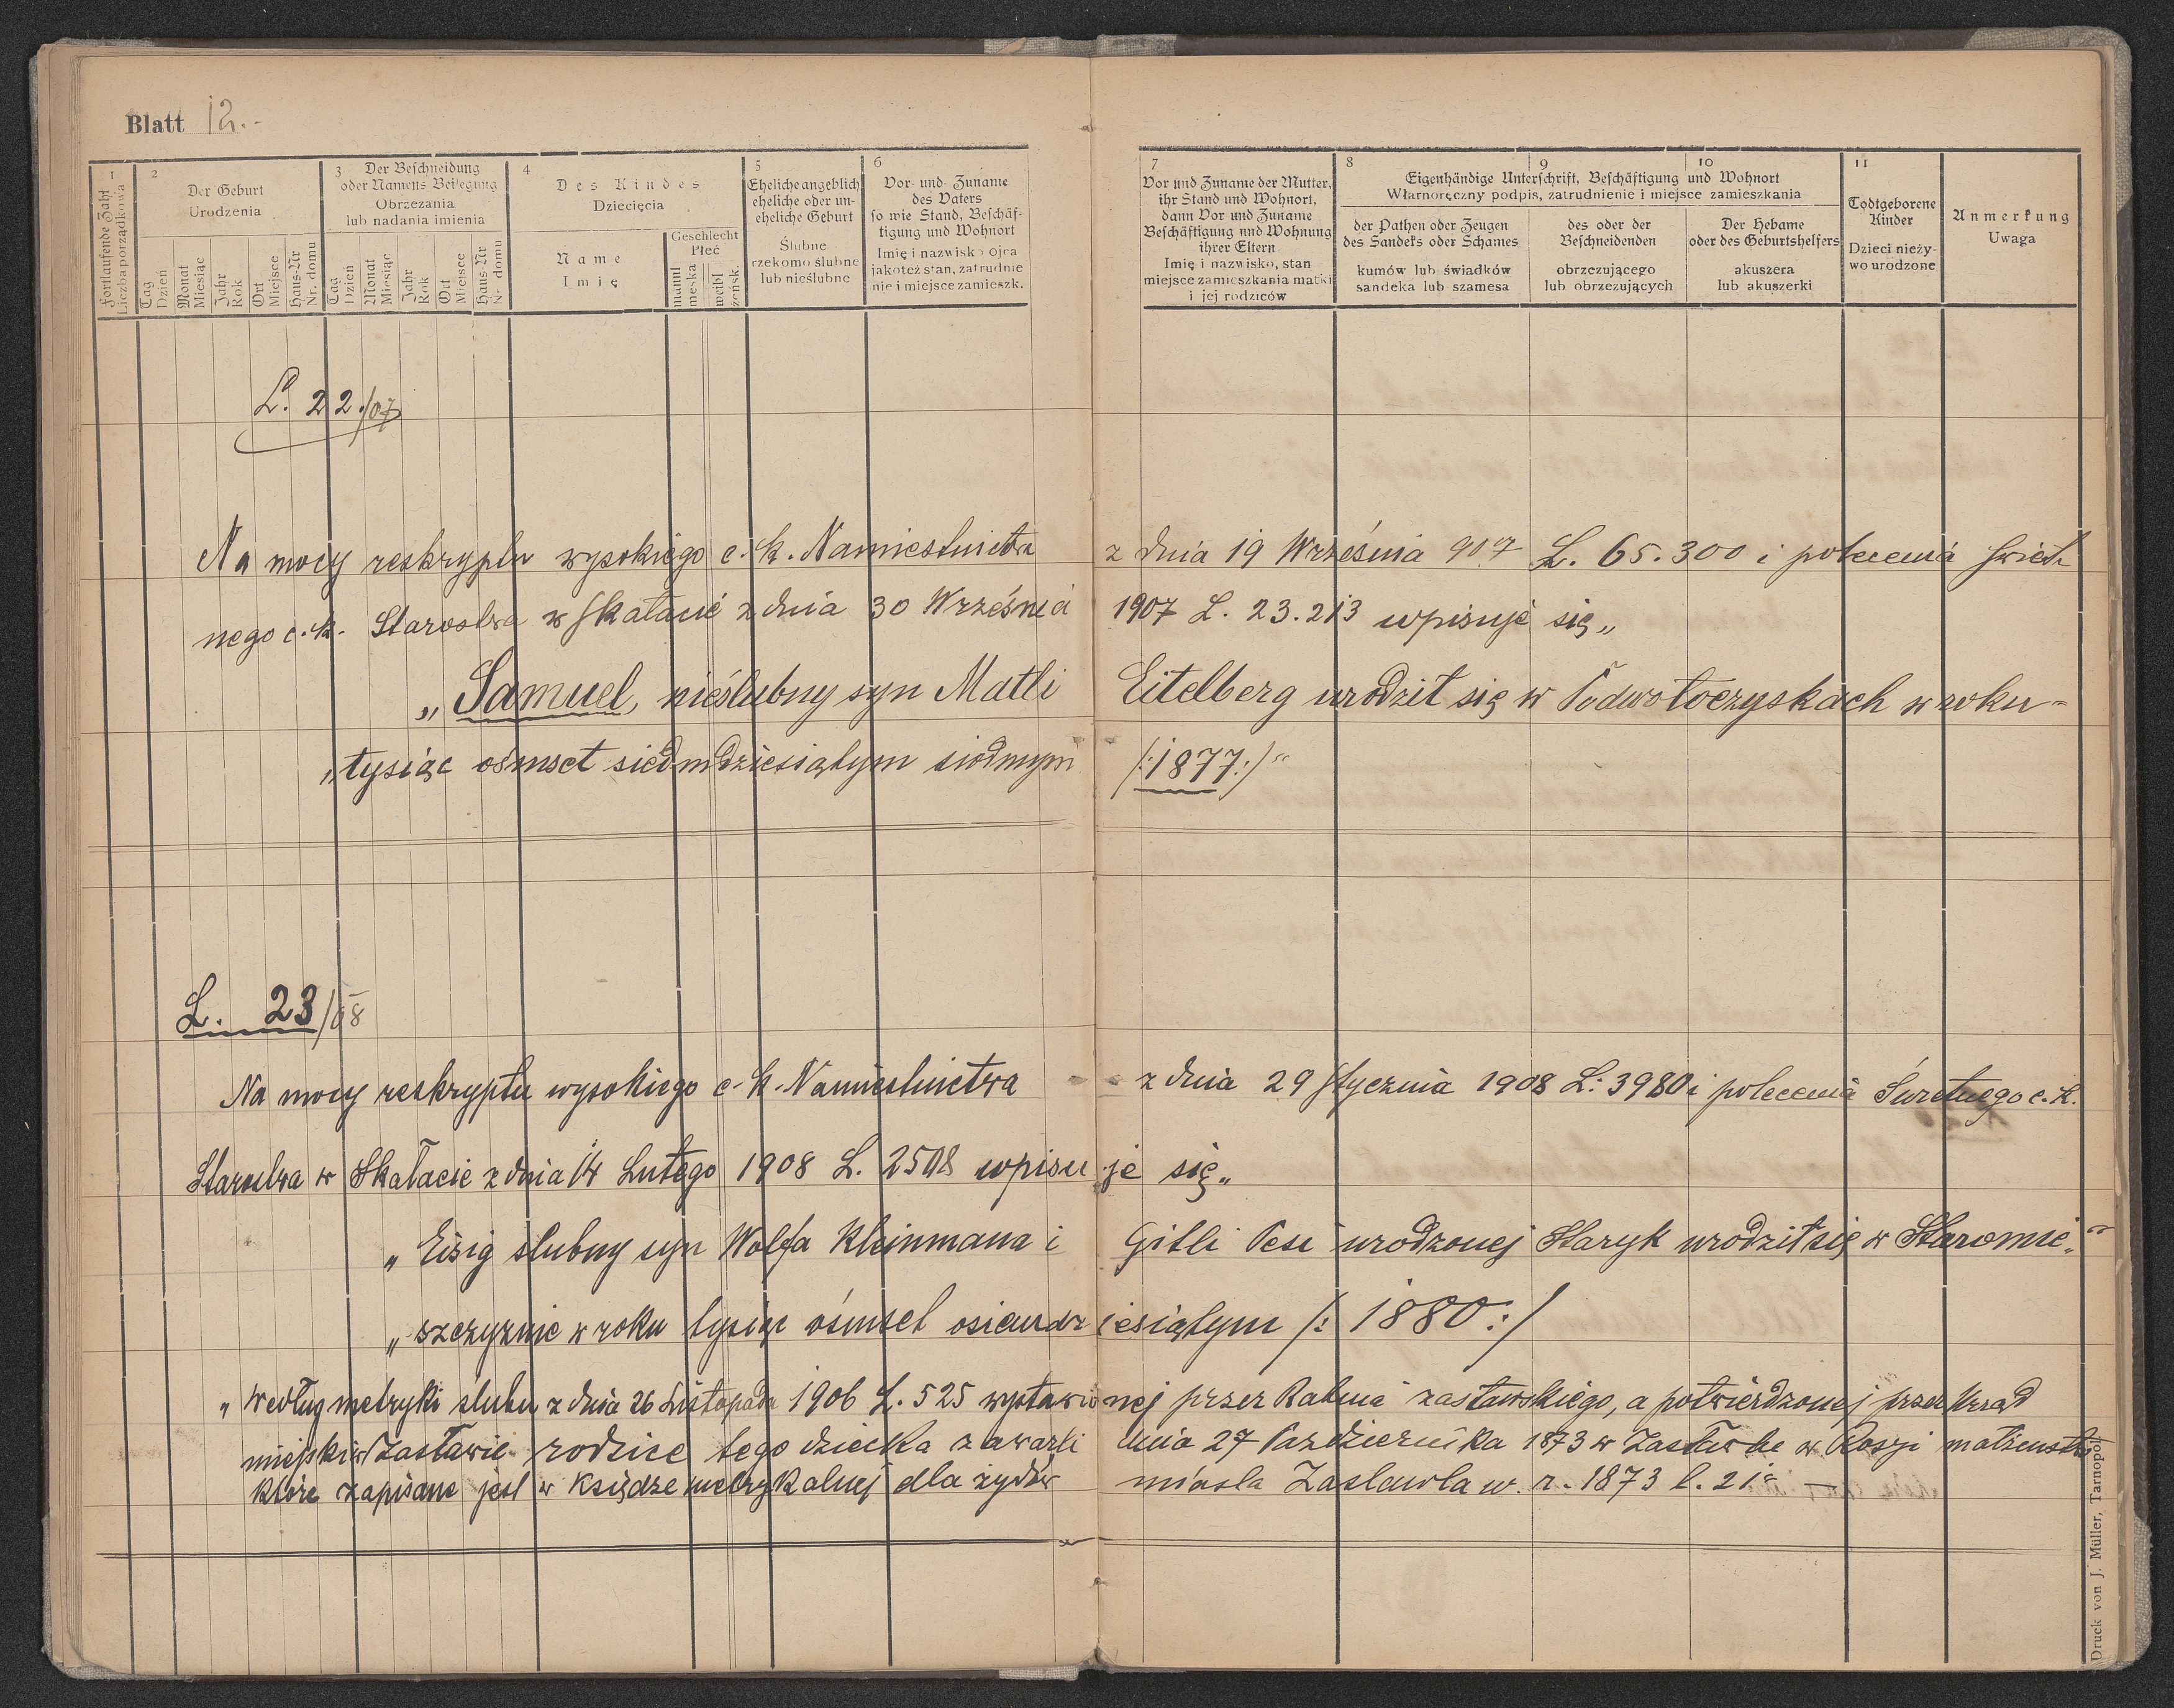 Blatt 12.-
1
Fortlaufende Zahl
Liczba porządkowa
2
Der Geburt
Urodzenia
Tag
Dzień
Monat
Miesiąc
Jahr
Rok
Ort
Miejsce
Haus-Nr
Nr. domu
3
Der Beschneidung
oder Namens Beilegung
Obrzezania
lub nadania imienia
Tag
Dzień
Monat
Miesiąc
Jahr
Rok
Ort
Miejsce
Haus-Nr
Nr. domu
4
Des Kindes
Dziecięcia
Name
Imię
Geschlecht
Płeć
männl
męska
weibl
żeńsk.
5
Eheliche angeblich
eheliche oder un-
eheliche Geburt
Ślubne
rzekomo ślubne
lub nieślubne
6
Vor- und Zuname
des Vaters
so wie Stand, Beschäf-
tigung und Wohnort
Imię i nazwisko ojca
jakoteż stan, zatrudnie
nie i miejsce zamieszk.
7
Vor und Zuname der Mutter,
ihr Stand und Wohnort,
dann Vor und Zuname
Beschäftigung und Wohnung
ihrer Eltern
Imię i nazwisko, stan
miejsce zamieszkania matki
i jej rodziców
8
9
10
Eigenhändige Unterschrift, Beschäftigung und Wohnort
Własnoręczny podpis, zatrudnienie i miejsce zamieszkania
der Pathen oder Zeugen
des Sandeks oder Schames
kumów lub świadków
sandeka lub szamesa
des oder der
Beschneidenden
obrzezującego
lub obrzezujących
Der Hebame
oder des Geburtshelfers
akuszera
lub akuszerki
11
Todtgeborene
Kinder
Dzieci nieży-
wo urodzone
Anmerkung
Uwaga
L. 22./07
Na mocy reskryptu wysokiego c. k. Namiestnictwa z dnia 19 Września 907 L. 65.300 i polecenia świet-
nego c. k. Starostwa w Skałacie z dnia 30 Września 1907 L. 23.213 wpisuje się„
„Samuel, nieślubny syn Matli Eitelberg urodził się w Podwołoczyskach w roku"
„tysiąc ośmset siedmdziesiątym siódmym /:1877:/"
L. 23/08
Na mocy reskryptu wysokiego c. k. Namiestnictwa z dnia 29 Stycznia 1908 L: 3980 i polecenia Świetnego c. k.
Starostwa w Skałacie z dnia 14 Lutego 1908 L. 2508 wpisuje się„
„Eisig ślubny syn Wolfa Kleinmana i Gitli Pesi urodzonej Staryk urodził się w Staromie„"
„szczyznie w roku tysiąc ośmset osiemdziesiątym /: 1880 :/
„według metryki ślubu z dnia 26 Listopada 1906 L. 525 wystawionej przez Rabina zasławskiego, a potwierdzonej przez Urząd
miejski w Zasławie rodzice tego dziecka zawarli dnia 27 Października 1873 w Zasławle w Rosyi małżeństwo
które zapisane jest w księdze metrykalnej dla żydów miasta Zasławla w. r. 1873 l. 21" —
Druck von J. Müller, Tarnopol